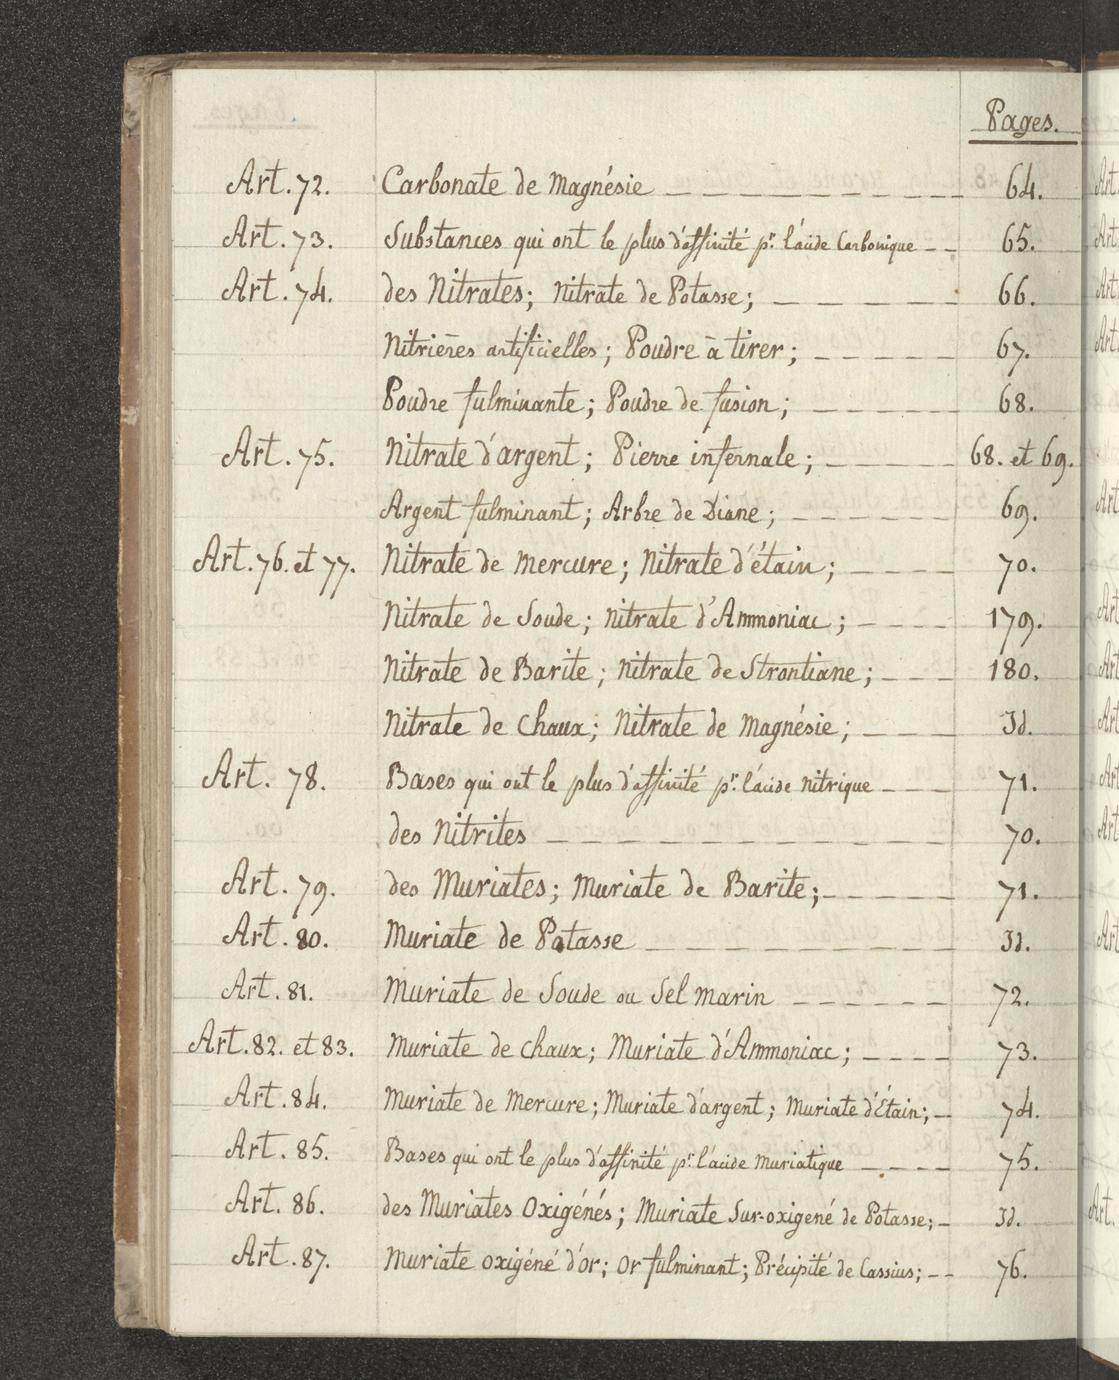 Pages.
Art. 72. Carbonate de Magnésie 64.
Art. 73. Substances qui ont le plus d'affinité pr. l'acide Carbonique 65.
Art. 74. des Nitrates; Nitrate de Potasse; 66.
Nitrières artificielles; Poudre à tirer; 67.
Poudre fulminante; Poudre de fusion; 68.
Art. 75. Nitrate d'argent; Pierre infernale; 68. et 69.
Argent fulminant; Arbre de Diane; 69.
Art. 76. et 77. Nitrate de Mercure; Nitrate d'étain; 70.
Nitrate de Soude; nitrate d'Ammoniac; 179.
Nitrate de Barite; nitrate de Strontiane; 180.
Nitrate de Chaux; Nitrate de Magnésie; Id.
Art. 78. Bases qui ont le plus d'affinité pr. l'acide nitrique 71.
des Nitrites 70.
Art. 79. des Muriates; Muriate de Barite; 71.
Art. 80. Muriate de Potasse Id.
Art. 81. Muriate de Soude ou Sel marin 72.
Art. 82. et 83. Muriate de chaux; Muriate d'Ammoniac; 73.
Art. 84. Muriate de Mercure; Muriate d'argent; Muriate d'Étain; 74.
Art. 85. Bases qui ont le plus d'affinité pr. l'acide Muriatique 75.
Art. 86. des Muriates Oxigénés; Muriate Sur-oxigené de Potasse; Id.
Art. 87. Muriate oxigéné d'or; Or fulminant; Précipité de Cassius; 76.